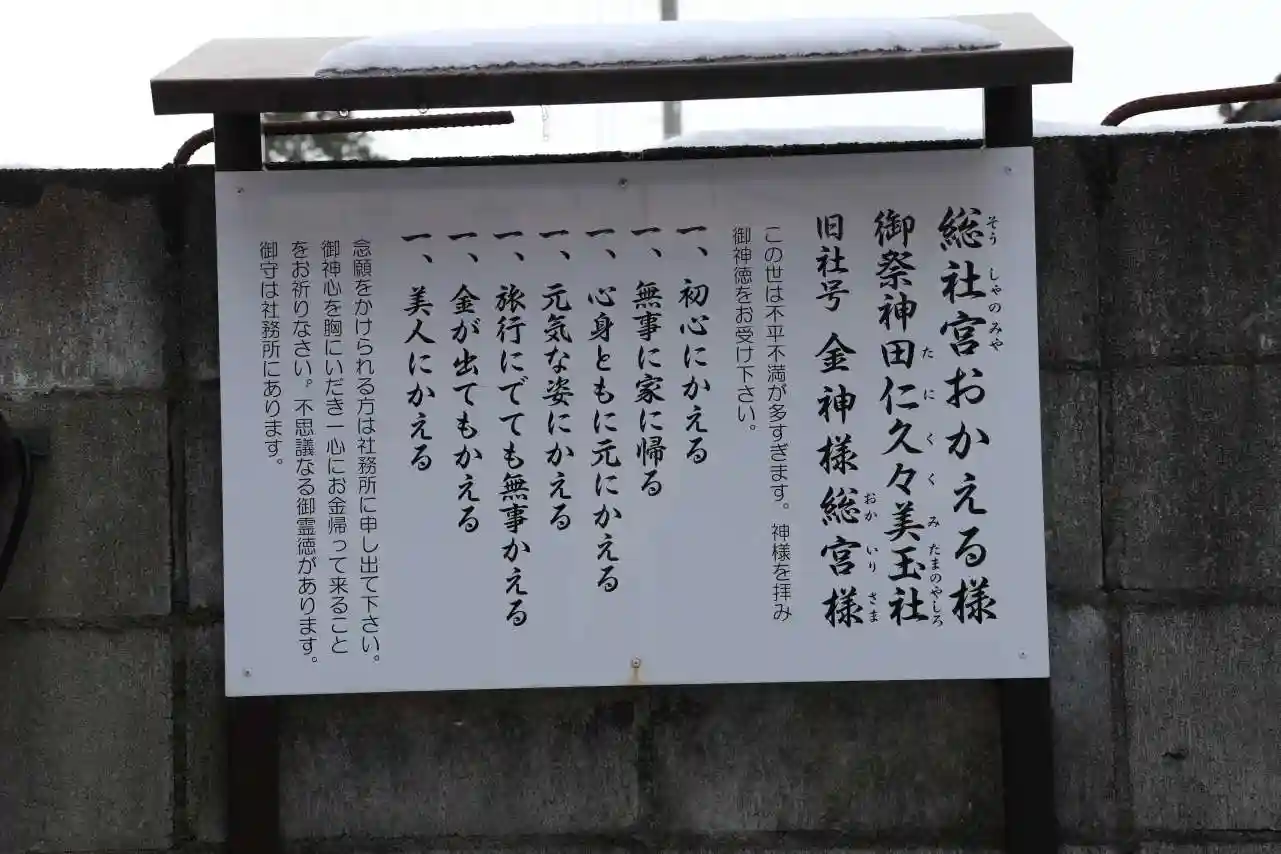 総社宮おかえる様
そう しゃのみや
御祭神田仁久々美玉社
たにくくみたまのやしろ
旧社号 金神様総宮様
おかいりさま
この世は不平不満が多すぎます。神様を拝み
御神徳をお受け下さい。
一、初心にかえる
一、無事に家に帰る
一、心身ともに元にかえる
一、元気な姿にかえる
一、旅行にでても無事かえる
一、金が出てもかえる
一、美人にかえる
念願をかけられる方は社務所に申し出て下さい。
御神心を胸にいだき一心にお金帰って来ること
をお祈りなさい。不思議なる御霊徳があります。
御守は社務所にあります。